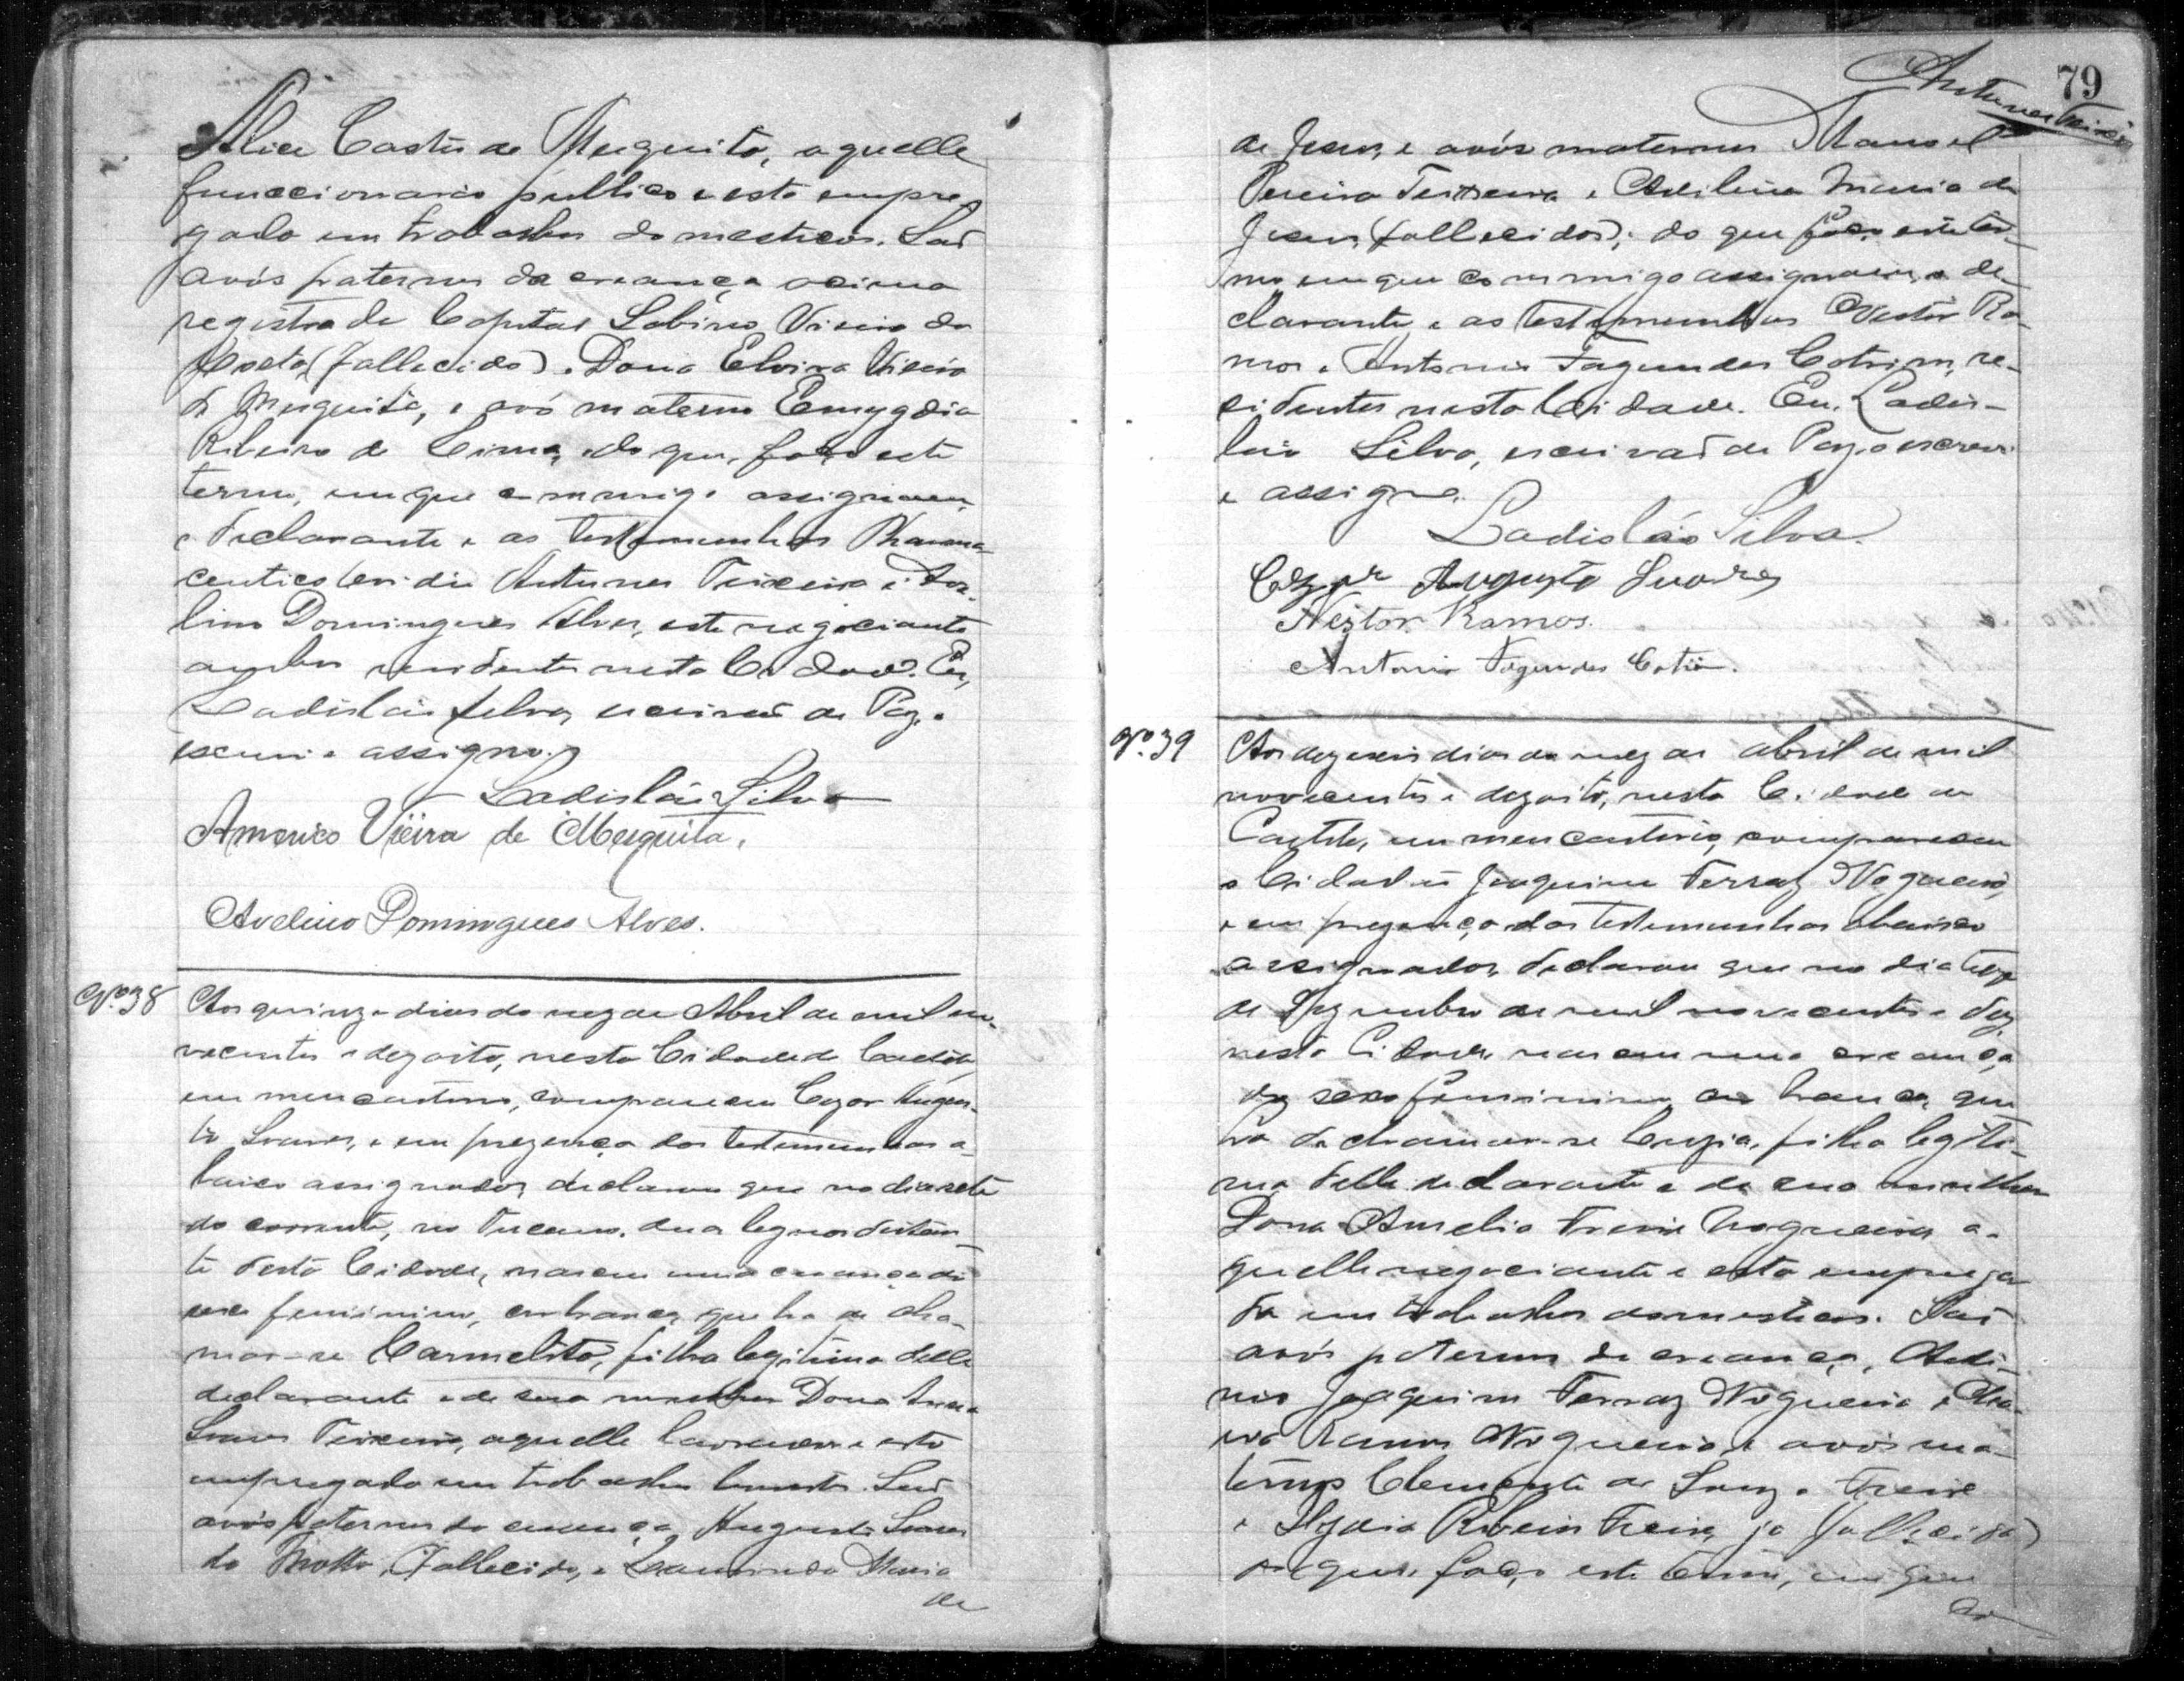 Alice Castro de Mesquita, aquelle
funccionario publico e esta empre
gada em trabalhos domesticos. São
avós paternos da creança acima
registrada Capitão Sabino Vieira da
Costa (fallecido) e Dona Elvira Vieira
de Mesquita, e avó materna Emygdia
Ribeiro de Lima, do que, faço este
termo, em que commigo assignam,
o declarante e as testemunhas Pharma
ceutico Antunes Teixeira e Ave
lino Domingues Alves, este negociante
ambos residentes nesta Cidade. Eu,
Ladisláo Silva, escrivão de Paz, o
escrevi e assigno.
Ladisláo Silva
Americo Vieira de Mesquita,
Avelino Domingues Alves.
Nº 38
Aos quinze dias do mez de Abril de mil no-
vecentos e dezoito, nesta Cidade de Caetité,
em meu cartorio, compareceu Cezar Augus-
to Soares, e em prezença das testemunhas a-
baixo assignadas, declarou que no dia sete
do corrente, no Tucano, duas leguas distan-
te desta Cidade, nasceu uma creança do
sexo feminino, côr branca, que ha de cha-
mar-se Carmelita, filha legitima delle
declarante e de sua mulher Dona
Soares Teixeira, aquelle lavrador e esta
empregada em trabalhos São
avós paternos da creança, Augusto Soares
da Motta (fallecido) e Maria
de
79
Antunes Teixeira
de Jesus, e avós maternos Manoel
Pereira Teixeira e Avelina Maria de
Jesus (fallecidos); do que faço este ter-
mo, em que commigo assignam, o de
clarante e as testemunhas Nestor Ra-
mos e Antonio Fagundes Cotrim, re-
sidentes nesta Cidade. Eu, Ladis-
láo Silva, escrivão de Paz, o escrevi
e assigno.
Ladisláo Silva.
Cezar Augusto Soares
Nestor Ramos.
Antonio Fagundes Cotrim.
Nº 39
Aos dezeseis dias do mez de Abril de mil
novecentos e dezoito, nesta Cidade de
Caetité, em meu cartorio, compareceu
o Cidadão Joaquim Ferraz Nogueira,
e em prezença das testemunhas abaixo
assignadas, declarou que no dia treze
de Dezembro de mil novecentos e dez,
nesta Cidade nasceu uma creança,
do sexo feminino, côr branca, que
ha de chamar-se Luzia, filha legiti-
ma delle declarante e de sua mulher
Dona Amelia Freire Nogueira, a-
quelle negociante e esta emprega
da em trabalhos domesticos. São
avós paternos da creança,
Joaquim Ferraz Nogueira e
Ramos Nogueira, e avós ma-
ternos Clemente de Souza Freire
e Lydia Ribeiro Freire, já (fallecida)
do que, faço este termo, em que